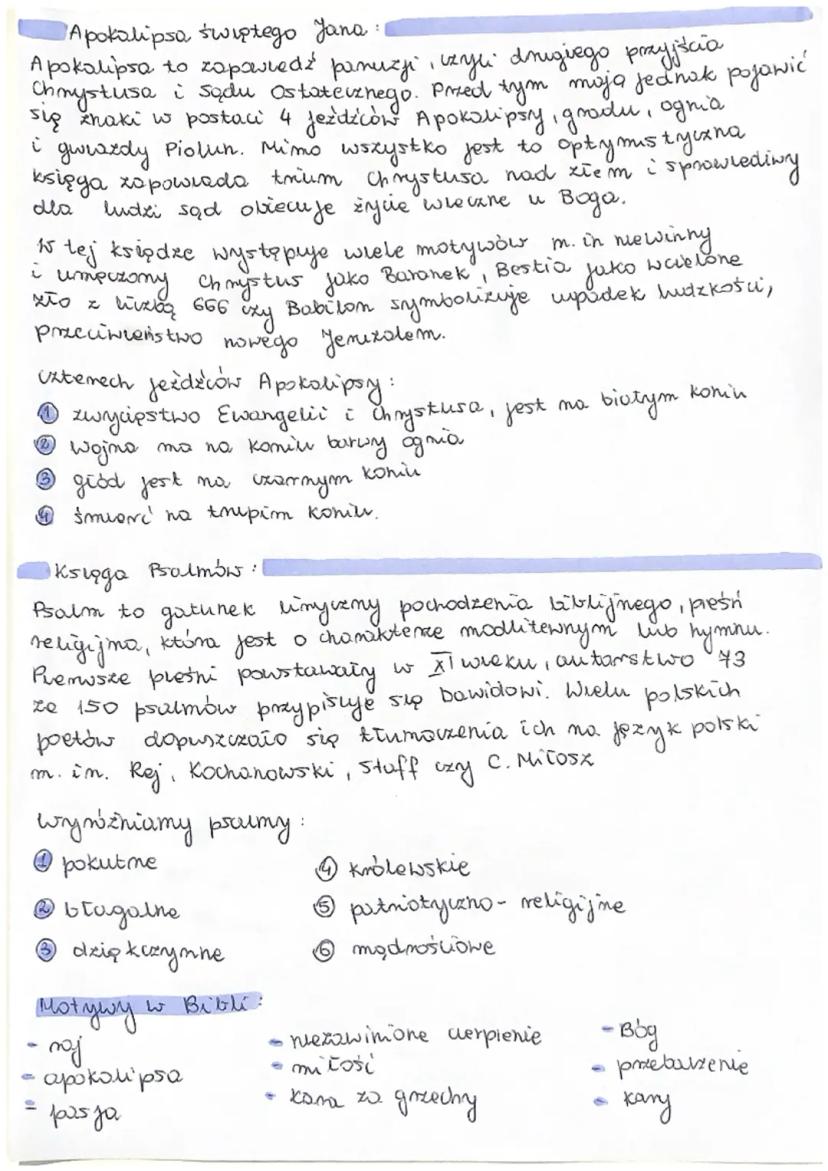 Apokalipsa świętego Jana:
Apokalipsa to zapowiedź paruzji, czyli drugiego przyjścia
Chrystusa i Sądu Ostatecznego. Przed tym mają jednak pojawić
się znaki w postaci 4 jeźdźców Apokalipsy, gradu, ognia
i gwiazdy Piołun. Mimo wszystko jest to optymistyczna
księga zapowiada trium Chrystusa nad złem i sprawiedliwy
dla ludzi sąd obiecuje życie wieczne u Boga.
W tej księdze występuje wiele motywów m.in niewinny
i umęczony Chrystus jako Baranek, Bestia jako wcielone
zło z liczbą 666 czy Babilon symbolizuje upadek ludzkości,
przeciwieństwo nowego Jeruzalem.
czterech jeźdźców Apokalipsy:
① zwycięstwo Ewangelii i Chrystusa, jest na białym koniu
② wojna ma na koniu barwy ognia
③ głód jest na czarnym koniu
④ śmierć na trupim koniu.
Księga Psalmów:
Psalm to gatunek liryczny pochodzenia biblijnego, pieśń
religijna, która jest o charakterze modlitewnym lub hymnu.
Pierwsze pieśni powstawały w XI wieku, autarstwo 73
ze 150 psalmów przypisuje się Dawidowi. Wielu polskich
poetów dopuszczało się tłumaczenia ich na język polski
m. in. Rej, Kochanowski, Staff czy C. Miłosz
wyróżniamy psalmy:
① pokutne
② błagalne
③ dziękczynne
④ królewskie
⑤ patriotyczno-religijne
⑥ mądrościowe
Motywy w Bibli:
- raj
- apokalipsa
- pasja
- niezawinione cierpienie
- miłość
- kara za grzechy
- Bóg
- przebaczenie
- kary